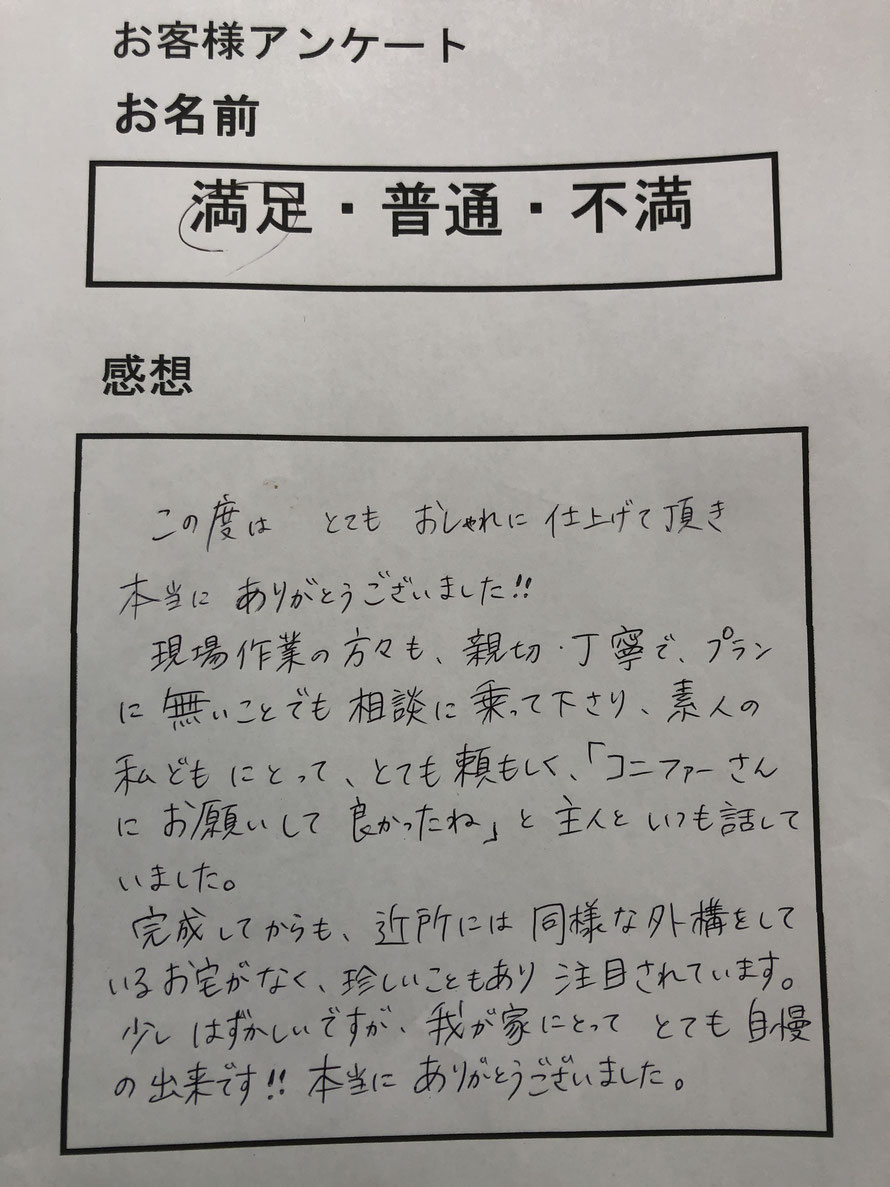 お客様アンケート
お名前
満足・普通・不満
感想
この度は とても おしゃれに 仕上げて頂き
本当に ありがとうございました!!
現場作業の方々も、親切・丁寧で、プラン
に 無いことでも 相談に 乗って下さり、素人の
私どもにとって、とても頼もしく、「コニファーさん
に お願いして 良かったね」と 主人と いつも話して
いました。
完成してからも、近所には 同様な外構をして
いるお宅がなく、珍しいこともあり 注目されています。
少し はずかしいですが、我が家にとって とても 自慢
の出来です!! 本当に ありがとうございました。